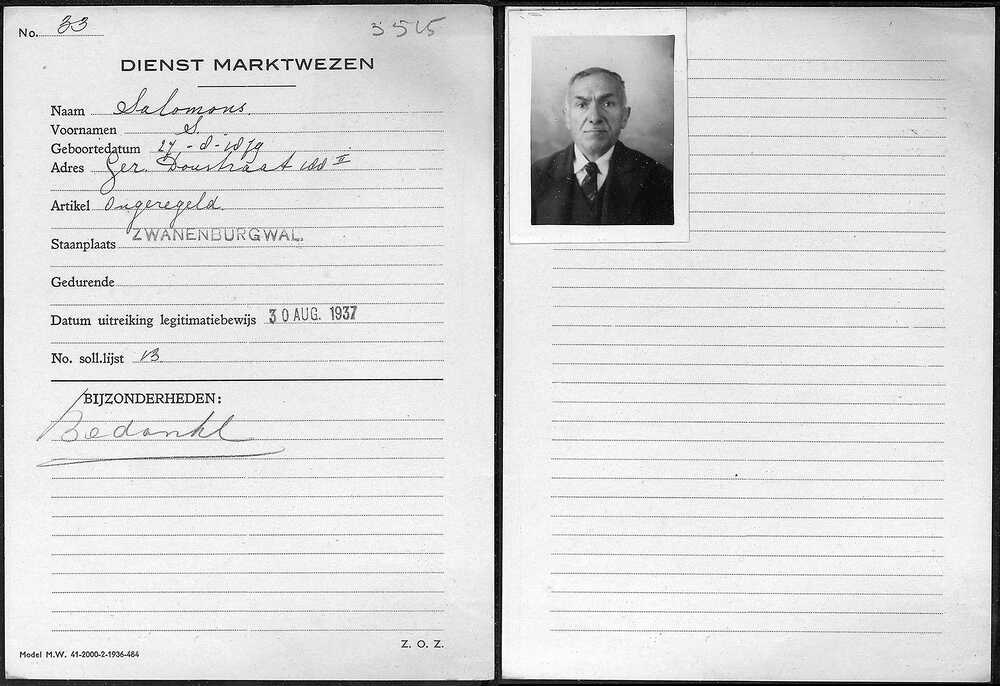 No. 33
3515
DIENST MARKTWEZEN
Naam Salomons.
Voornamen S.
Geboortedatum 27-8-1879
Adres Ger. Doustraat 188 II
Artikel Ongeregeld.
Staanplaats ZWANENBURGWAL.
Gedurende
Datum uitreiking legitimatiebewijs 30 AUG. 1937
No. soll.lijst 13
BIJZONDERHEDEN:
Bedankt
Model M.W. 41-2000-2-1936-484
Z. O. Z.